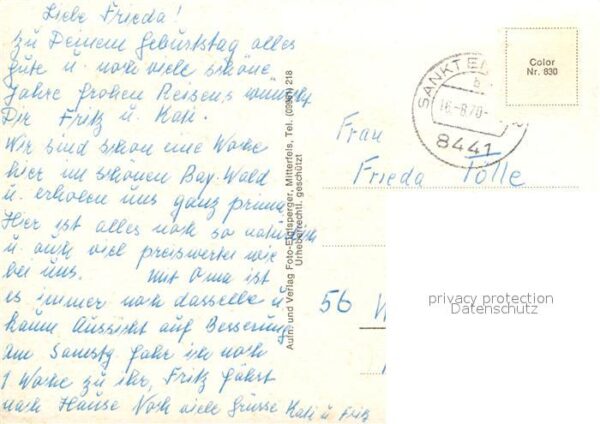 Liebe Frieda!
Zu Deinem Geburtstag alles
gute u. noch viele schöne
Jahre frohen Reisens wünscht
Dir Fritz u. Käti.
Wir sind schon eine Woche
hier im schönen Bay. Wald
u. erholen uns ganz prima
Hier ist alles noch so natürlich
u. auch viel preiswerter wie
bei uns. Mit Oma ist
es immer noch dasselbe u.
kaum Aussicht auf Besserung
am Samstg fahr ich noch
1 Woche zu ihr, Fritz fährt
nach Hause Noch viele Grüsse Käti u Fritz
Aufn. und Verlag Foto-Esptsperger, Mitterfels, Tel. (09961) 218
Urheberrechtl. geschützt
Color
Nr. 830
SANKT
16.-8.70-
8441
Frau
Frieda Tölle
56 W
privacy protection
Datenschutz